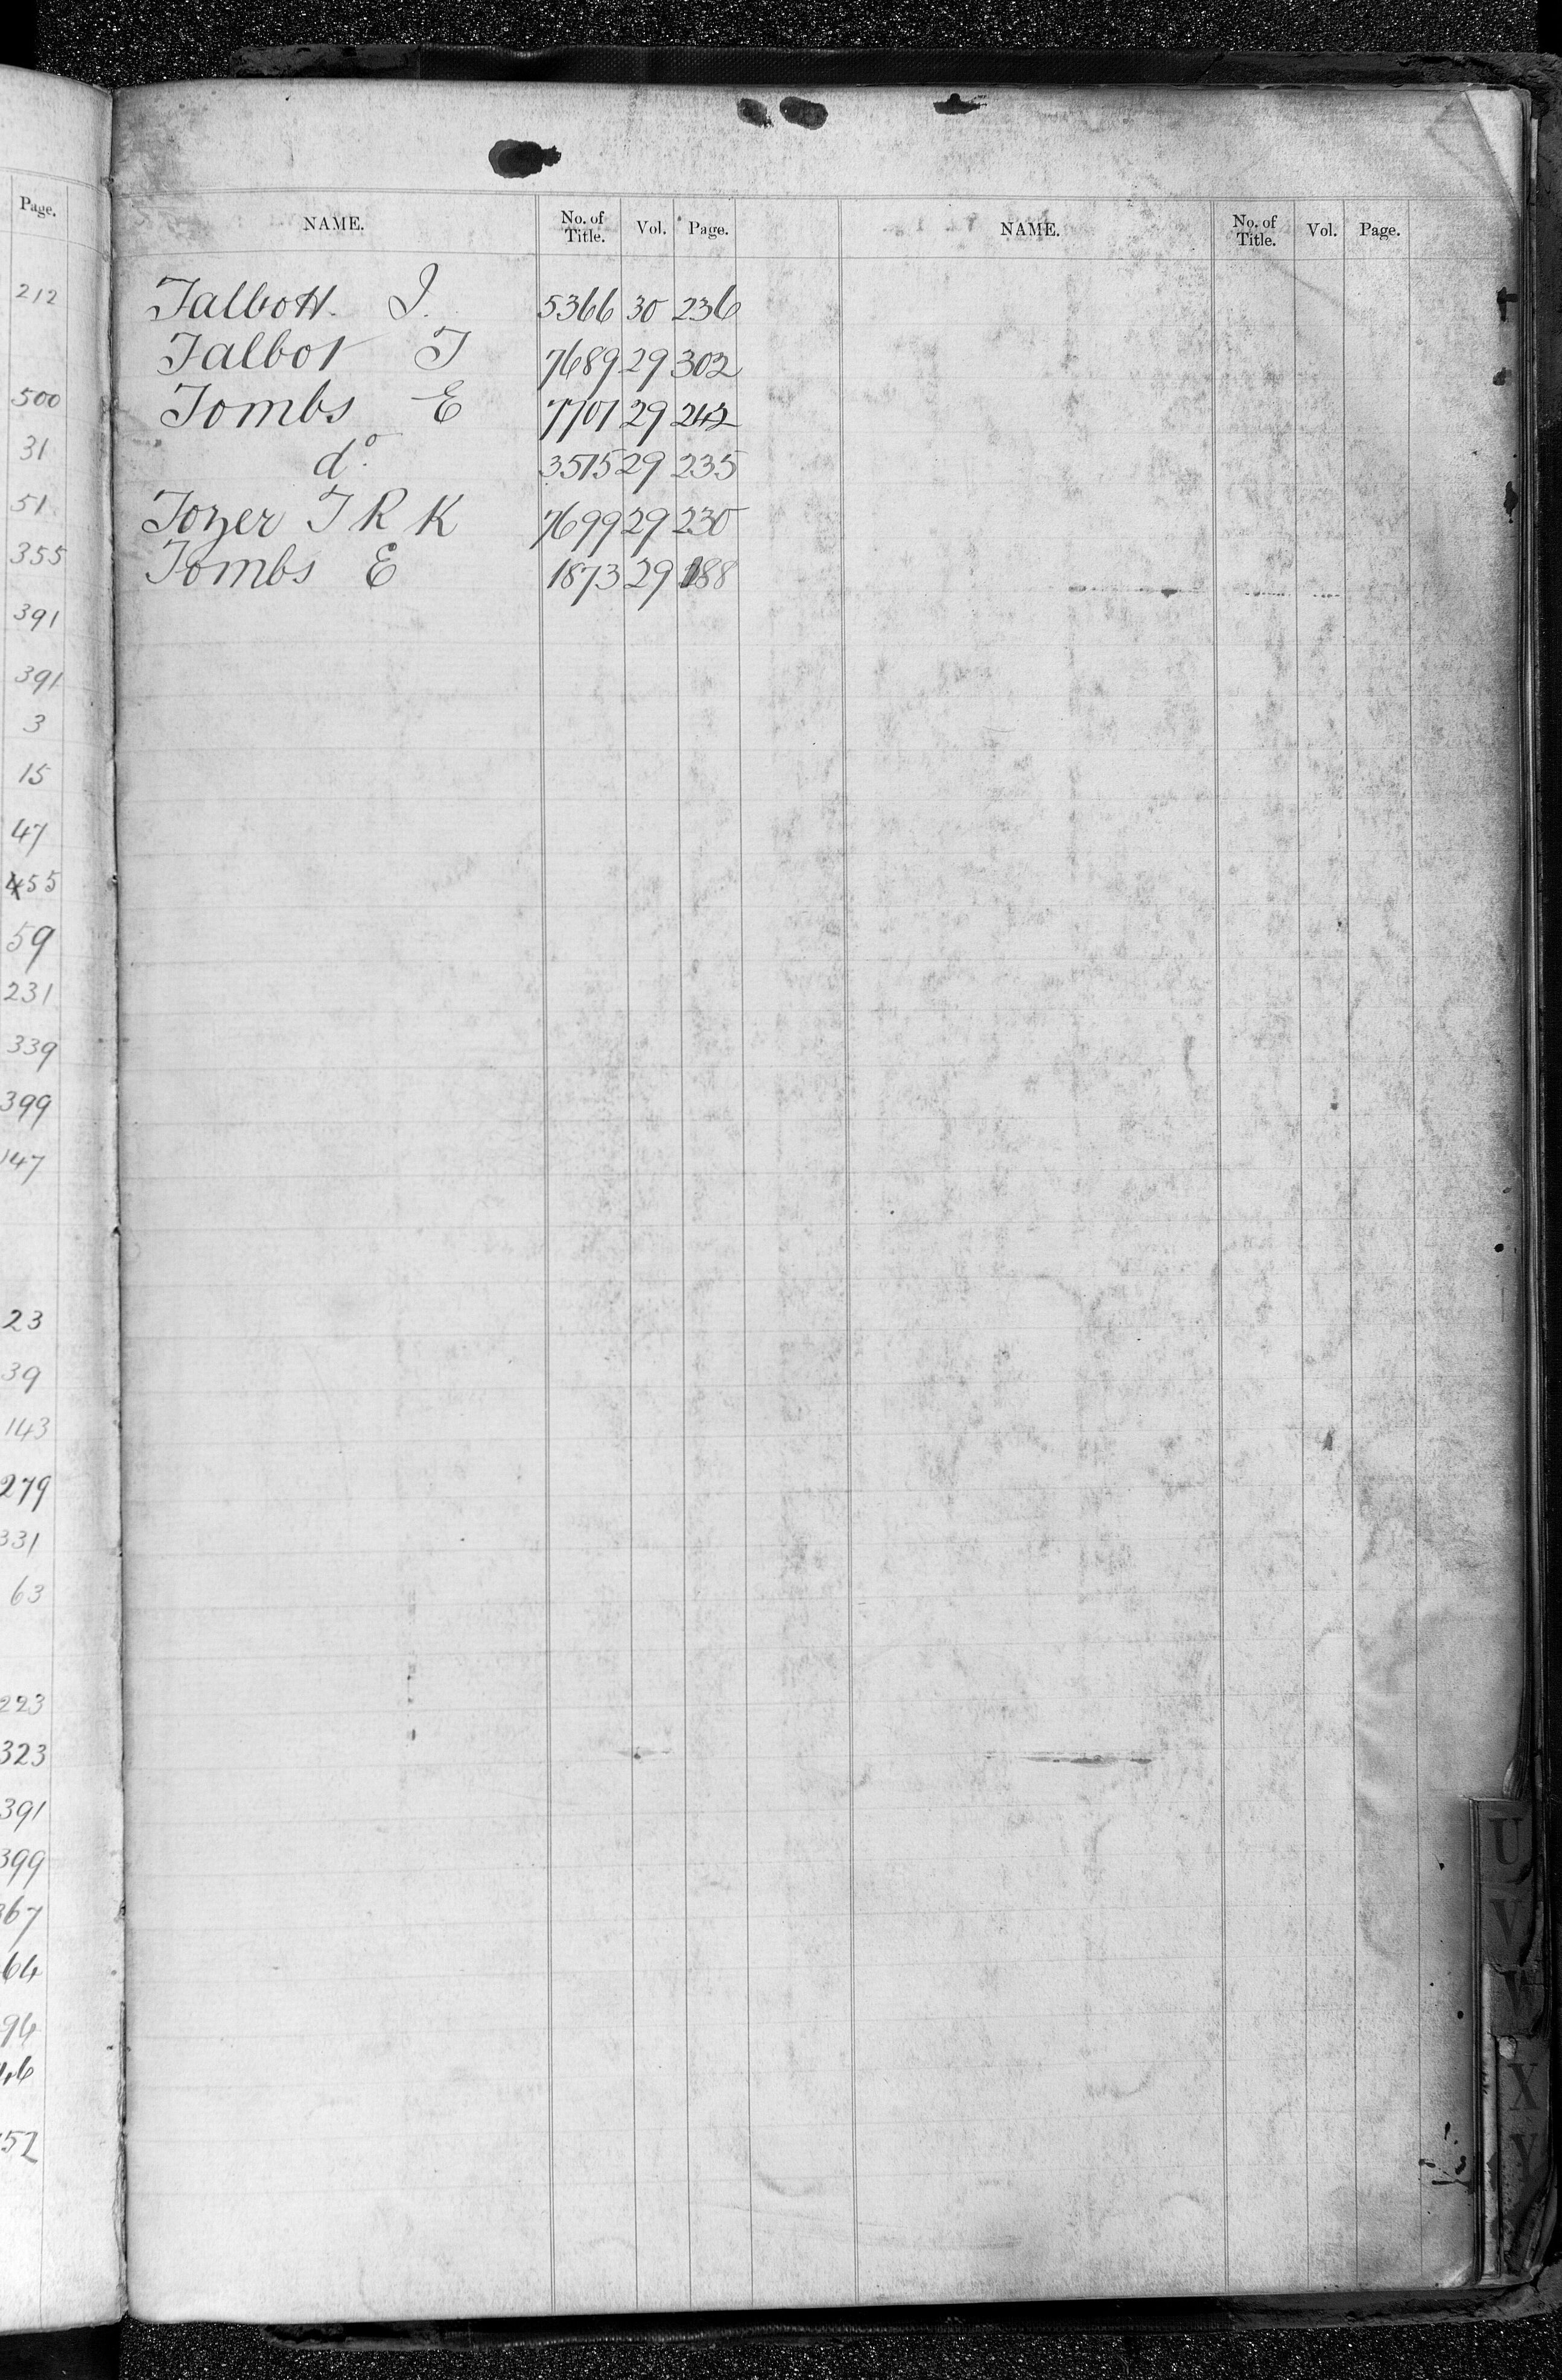 Page.
212
500
31
51
355
391
391
3
15
47
455
59
231
339
399
147
23
39
143
279
331
63
223
323
391
399
367
64
94
46
52
NAME. No. of Title. Vol. Page. NAME. No. of Title. Vol. Page.
Talbott. J. 5366 30 236
Talbot T 7689 29 302
Tombs E 7701 29 242
do. 3515 29 235
Tozer T R K 7699 29 230
Tombs E 1873 29 188
U
V
W
X
Y